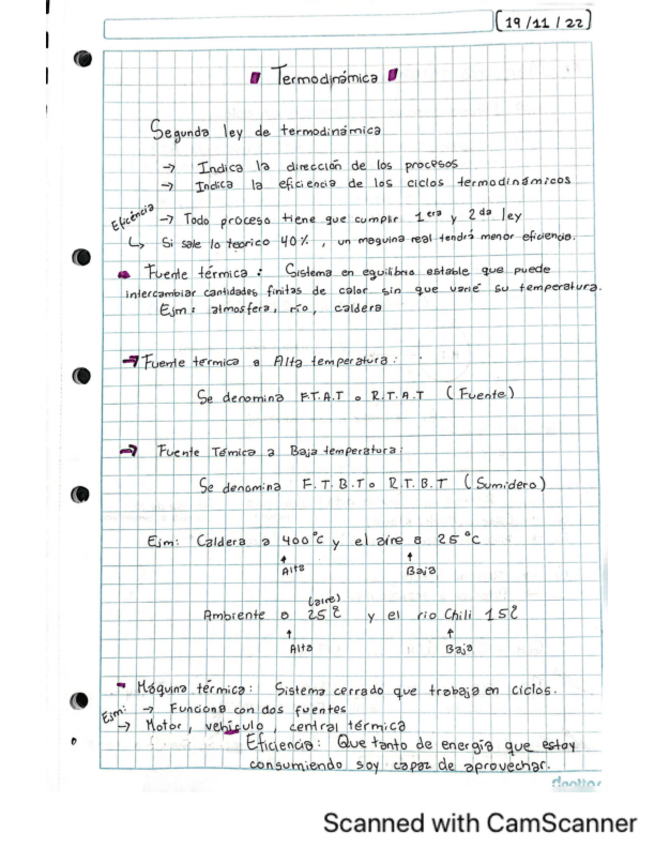 (19/11/22)
Termodinámica
Segunda ley de termodinámica
→ Indica la dirección de los procesos
→ Indica la eficiencia de los ciclos termodinámicos
Eficéncia → Todo proceso tiene que cumplir 1era y 2da ley
↳ Si sale lo teorico 40%, un maquina real tendrá menor eficiencia.
Fuente térmica: Sistema en equilibrio estable que puede
intercambiar cantidades finitas de calor sin que varié su temperatura.
Ejm: atmosfera, río, caldera
→ Fuente termica a Alta temperatura:
Se denomina F.T.A.T o R.T.A.T (Fuente)
→ Fuente Témica a Baja temperatura:
Se denomina F.T.B.T o R.T.B.T (Sumidero)
Ejm: Caldera a 400°C y el aire a 25°C
↑ Alta ↑ Baja
(aire)
Ambiente a 25℃ y el rio Chili 15℃
↑ Alta ↑ Baja
Máquina térmica: Sistema cerrado que trabaja en ciclos.
Ejm: → Funciona con dos fuentes
→ Motor, vehículo, central térmica
Eficiencia: Que tanto de energía que estoy
consumiendo soy capaz de aprovechar.
Scanned with CamScanner